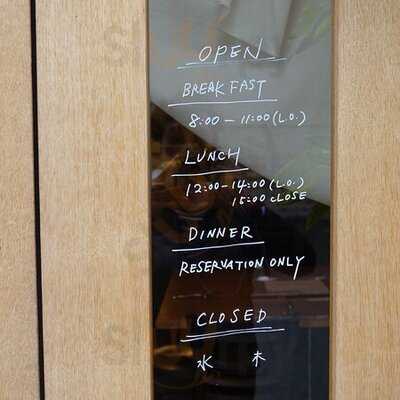 OPEN
BREAKFAST
8:00 - 11:00 (L.O.)
LUNCH
12:00 - 14:00 (L.O.)
15:00 CLOSE
DINNER
RESERVATION ONLY
CLOSED
水 木